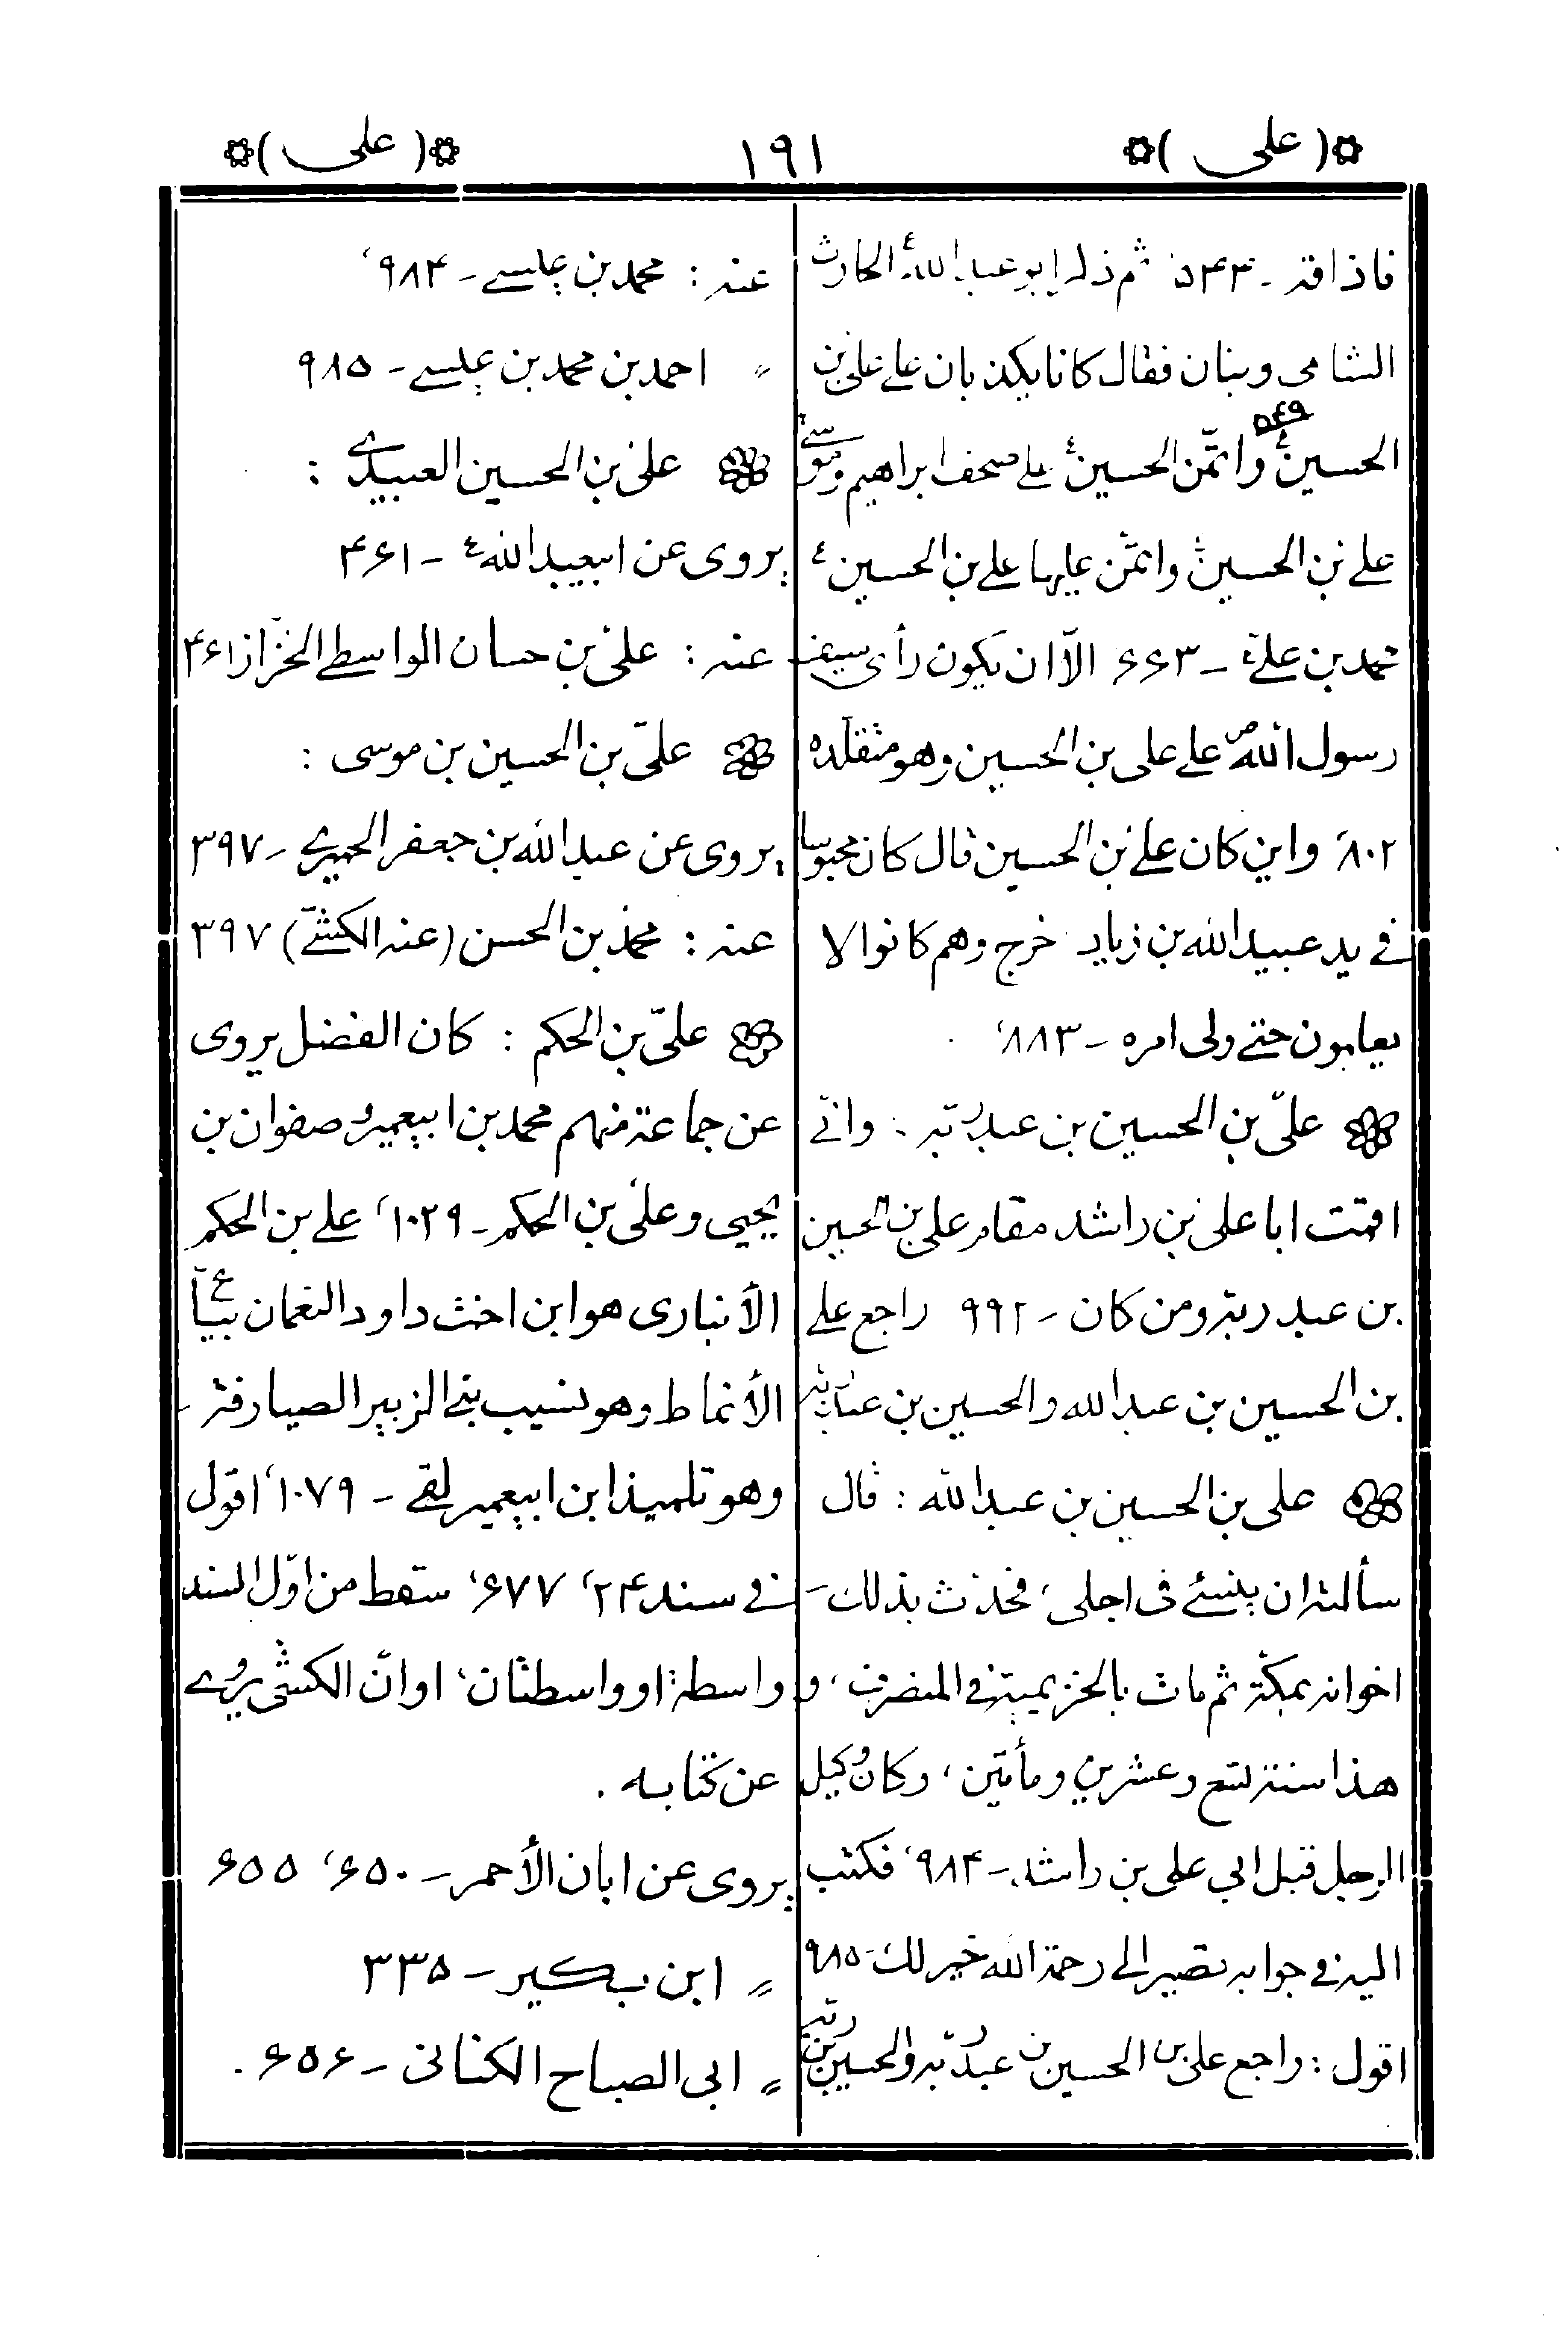 (علی)
۱۹۱
(علی)
فاذاقه - ۵۴۳، ثم ذکر ابوعبدالله ع الحارث
الشامی وبنان فقال کانا یکذبان علی علی بن
الحسین ع ۵۴۹ وائتمن الحسین ع علی صحف ابراهیم وموسی
علی بن الحسین وائتمن علیها علی بن الحسین ع
محمد بن علی ع - ۶۶۳ الاّ ان یکون رأی سیف
رسول الله ص علی علی بن الحسین وهو متقلّده
۸۰۲، واین کان علی بن الحسین قال کان محبوسا
فی ید عبیدالله بن زیاد خرج وهم کانوا لا
یعلمون حتی ولی امره - ۸۸۳،
علیّ بن الحسین بن عبدربّه: وانّی
اقمت ابا علی بن راشد مقام علی بن الحسین
بن عبد ربّه ومن کان - ۹۹۲ راجع علی
بن الحسین بن عبدالله والحسین بن عبدربّه
علی بن الحسین بن عبدالله: قال
سألته ان ینسئ فی اجلی، فحدّث بذلک
اخوانه بمکّة ثم مات بالخزیمیة فی المنصرف، و
هذا سنة تسع وعشرین ومأتین، وکان وکیل
الرجل قبل ابی علی بن راشد - ۹۸۴، فکتب
الیه فی جوابه تصیر الی رحمة الله خیر لک - ۹۸۵
اقول: راجع علی بن الحسین بن عبدربّه والحسین بن ربّه
عنه: محمد بن عیسی - ۹۸۴،
〃 احمد بن محمد بن عیسی - ۹۸۵
علی بن الحسین العبیدی:
یروی عن ابیعبدالله ع - ۴۶۱
عنه: علیّ بن حسان الواسطی الخزّاز ۴۶۱
علیّ بن الحسین بن موسی:
یروی عن عبدالله بن جعفر الحمیری - ۳۹۷
عنه: محمّد بن الحسن (عنه الکشّی) ۳۹۷
علیّ بن الحکم: کان الفضل یروی
عن جماعة منهم محمد بن ابیعمیر وصفوان بن
یحیی وعلیّ بن الحکم - ۱۰۲۹، علی بن الحکم
الأنباری هو ابن اخت داود النعمان بیّاع
الأنماط وهو نسیب بنی الزبیر الصیارفة -
وهو تلمیذ ابن ابیعمیر لقی - ۱۰۷۹، اقول
فی سند ۲۴، ۶۷۷، سقط من اوّل السند
واسطة او واسطتان، او انّ الکشّی یروی
عن کتابه.
یروی عن ابان الأحمر - ۶۵۰، ۶۵۵
〃 ابن بکیر - ۳۳۵
〃 ابی الصباح الکنانی - ۶۵۶.